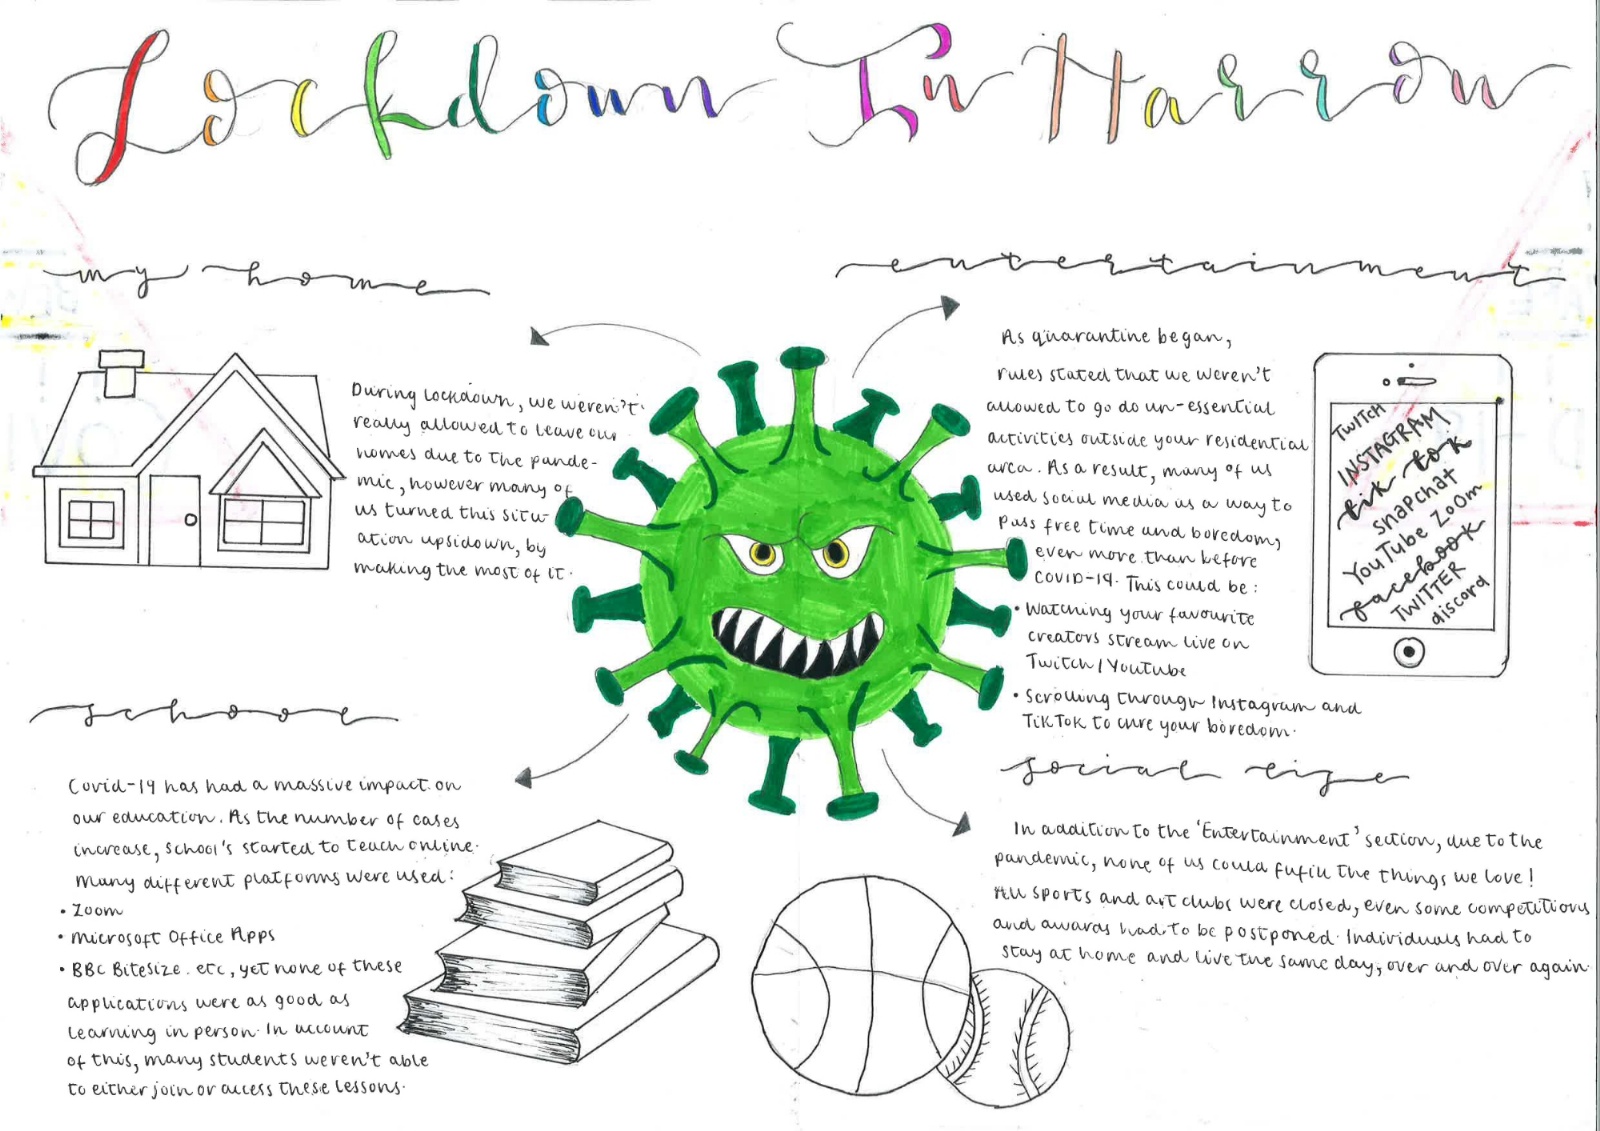 Lockdown In Harrow
my home
During lockdown, we weren't
really allowed to leave our
homes due to the pande-
mic, however many of
us turned this situ-
ation upsidown, by
making the most of it.
entertainment
As quarantine began,
rules stated that we weren't
allowed to go do un-essential
activities outside your residential
area. As a result, many of us
used social media as a way to
pass free time and boredom,
even more than before
COVID-19. This could be:
• Watching your favourite
creators stream live on
Twitch/YouTube
• Scrolling through Instagram and
TikTok to cure your boredom.
TWITCH
INSTAGRAM
tik tok
snapchat
YouTube Zoom
facebook
TWITTER
discord
school
Covid-19 has had a massive impact on
our education. As the number of cases
increase, school's started to teach online.
Many different platforms were used:
• Zoom
• Microsoft Office Apps
• BBC Bitesize. etc, yet none of these
applications were as good as
learning in person. In account
of this, many students weren't able
to either join or access these lessons.
social life
In addition to the 'Entertainment' section, due to the
pandemic, none of us could fufill the things we love!
All sports and art clubs were closed, even some competitions
and awards had to be postponed. Individuals had to
stay at home and live the same day, over and over again.